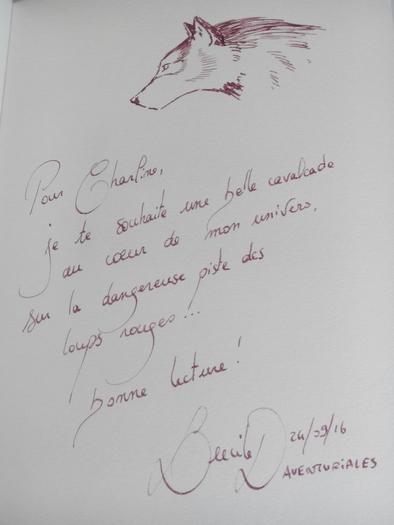 Pour Charline,
je te souhaite une belle cavalcade
au cœur de mon univers,
sur la dangereuse piste des
loups rouges...
bonne lecture !
24/09/16
AVENTURIALES